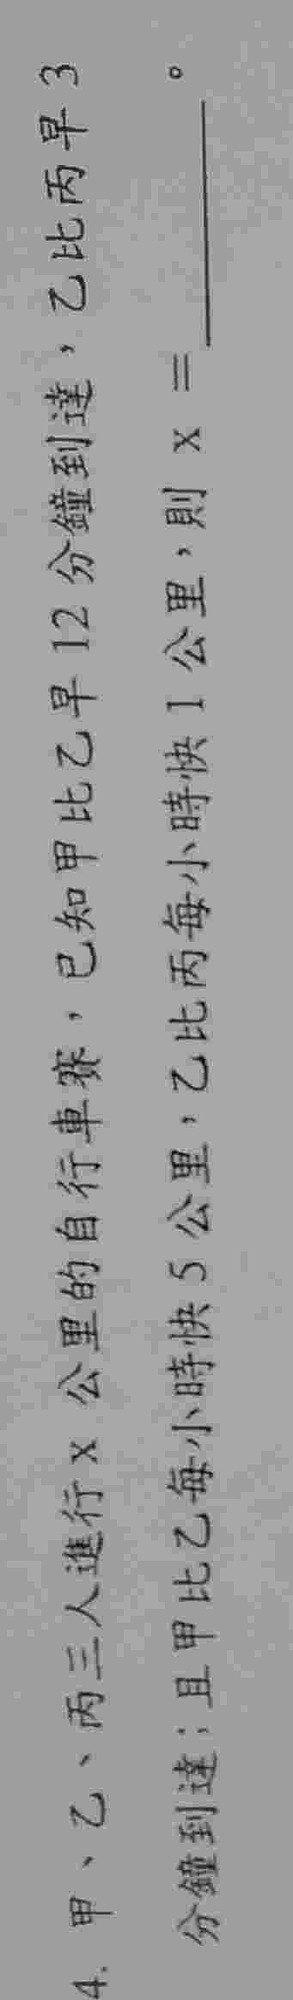 4. 甲、乙、丙三人進行 x 公里的自行車賽，已知甲比乙早 12 分鐘到達，乙比丙早 3
分鐘到達；且甲比乙每小時快 5 公里，乙比丙每小時快 1 公里，則 x = ________。